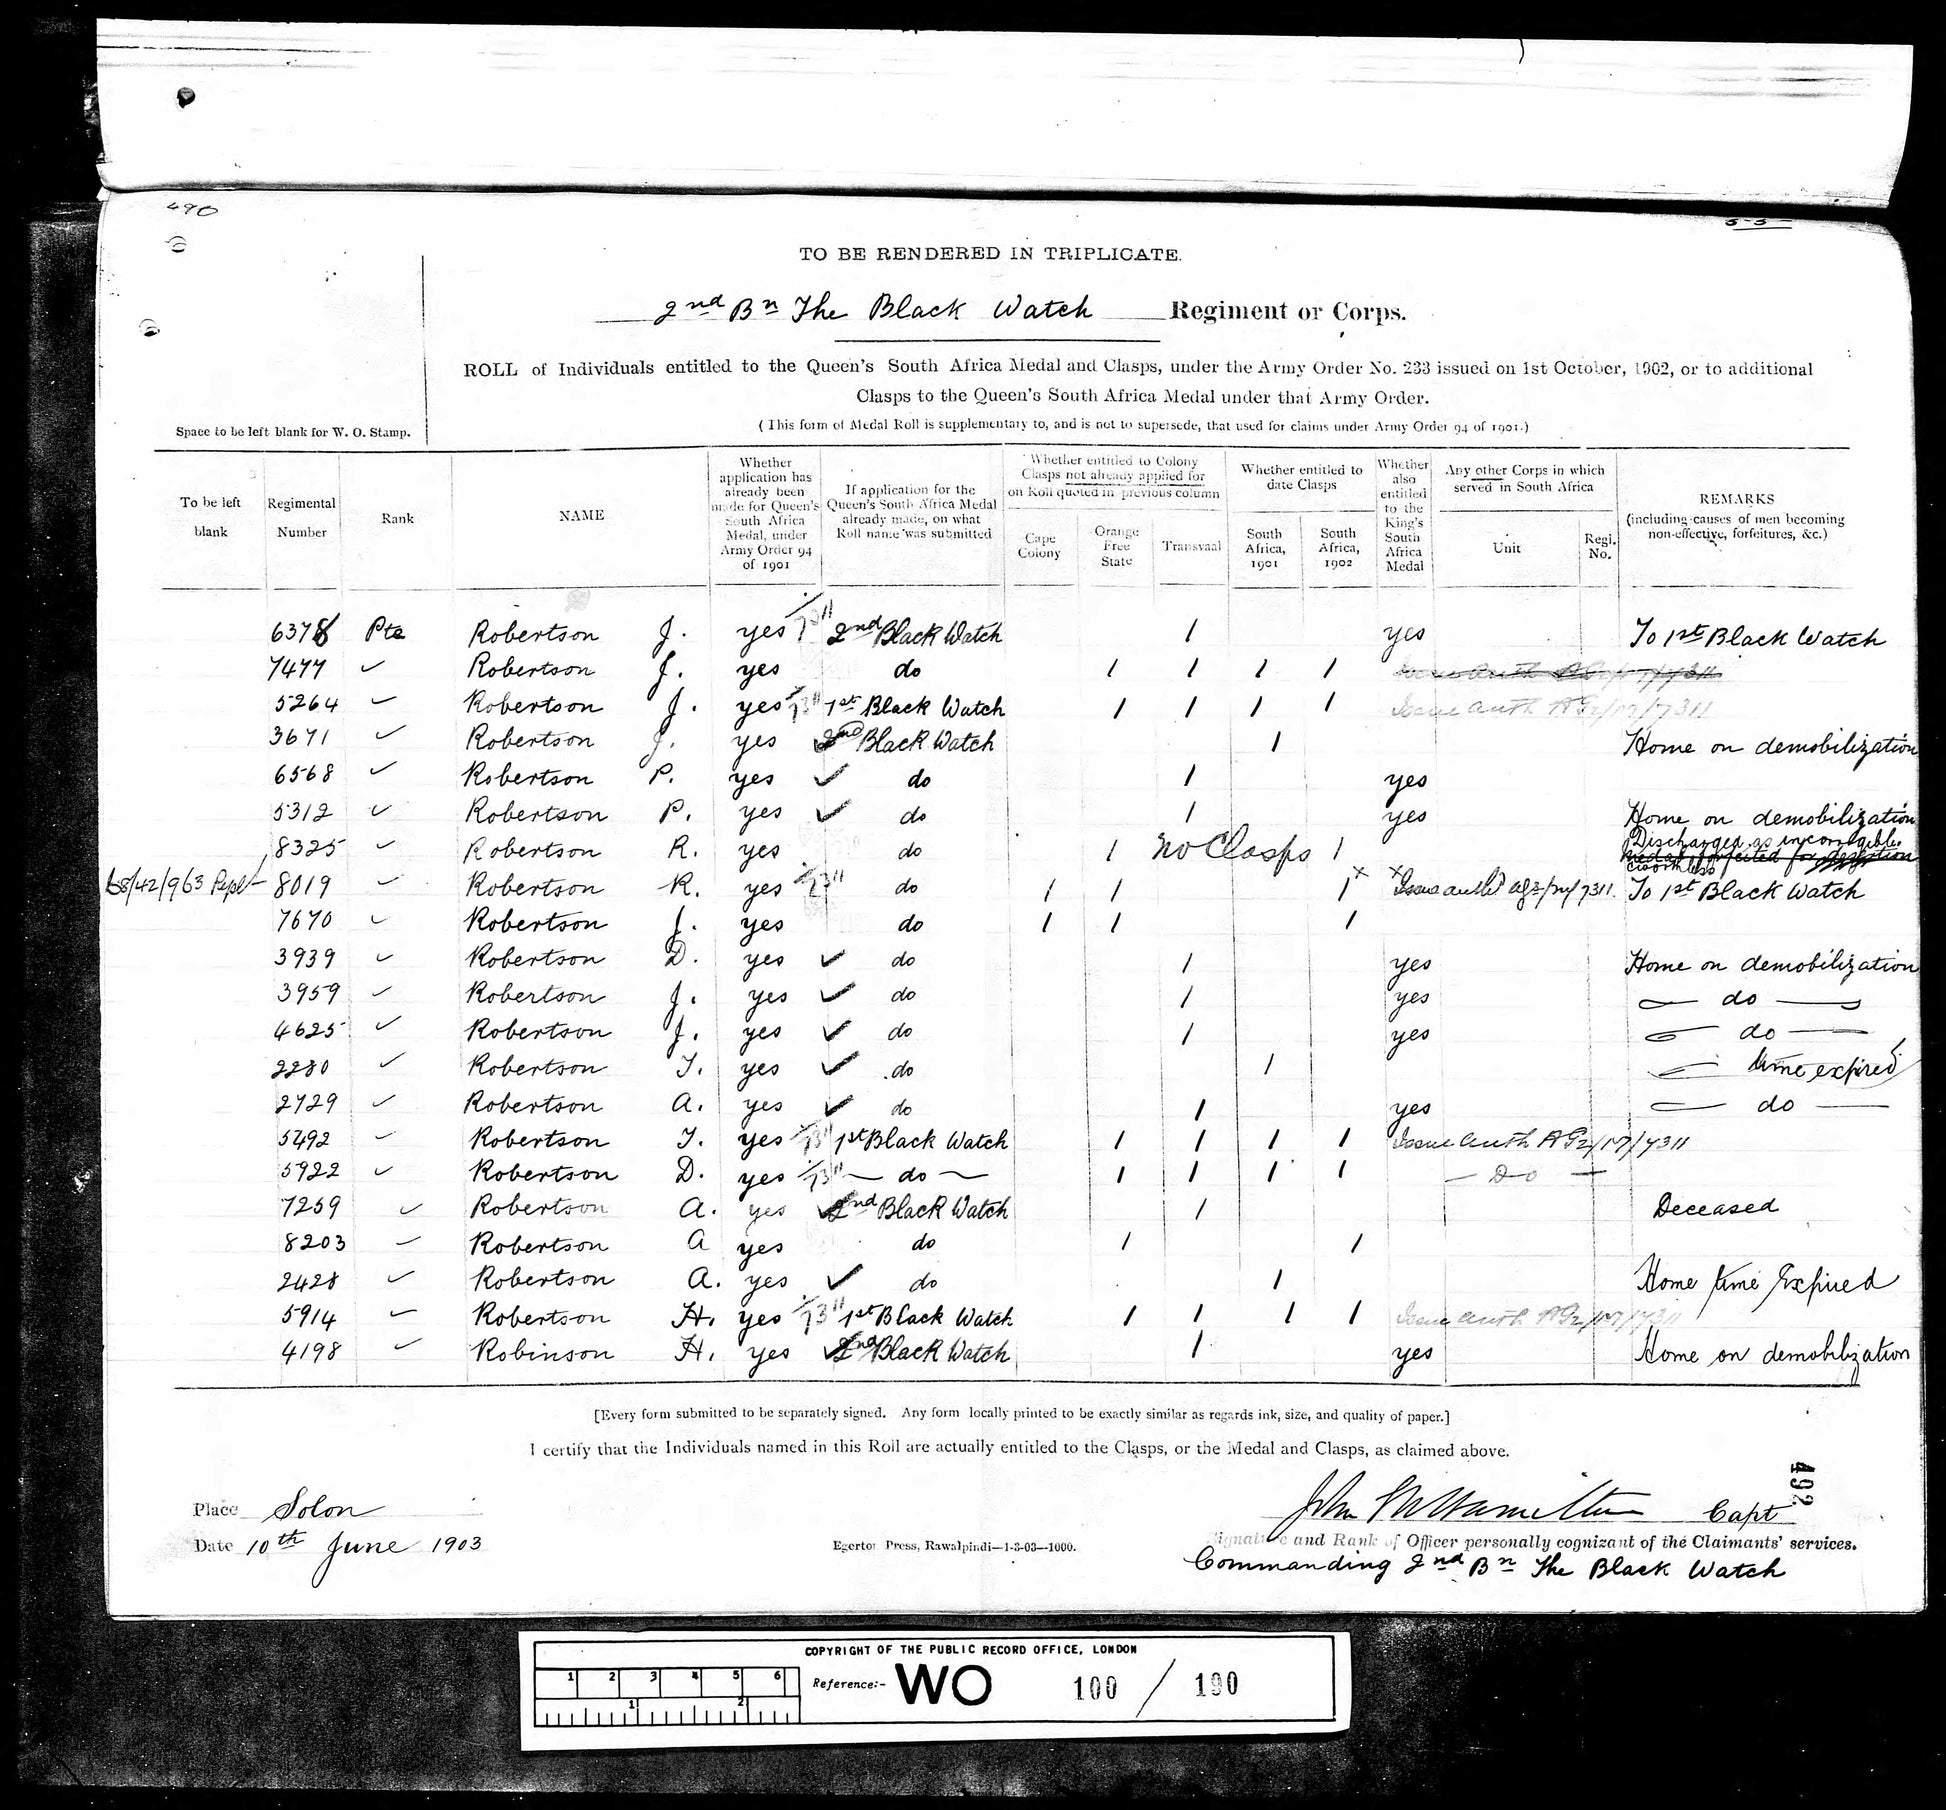 490
TO BE RENDERED IN TRIPLICATE.
2nd Bn The Black Watch Regiment or Corps.
ROLL of Individuals entitled to the Queen's South Africa Medal and Clasps, under the Army Order No. 233 issued on 1st October, 1902, or to additional
Clasps to the Queen's South Africa Medal under that Army Order.
(This form of Medal Roll is supplementary to, and is not to supersede, that used for claims under Army Order 94 of 1901.)
Space to be left blank for W. O. Stamp.
To be left blank
Regimental Number
Rank
NAME
Whether application has already been made for Queen's South Africa Medal, under Army Order 94 of 1901
If application for the Queen's South Africa Medal already made, on what Roll name was submitted
Whether entitled to Colony Clasps not already applied for on Roll quoted in previous column
Cape Colony
Orange Free State
Transvaal
Whether entitled to date Clasps
South Africa, 1901
South Africa, 1902
Whether also entitled to the King's South Africa Medal
Any other Corps in which served in South Africa
Unit
Regl. No.
REMARKS
(including causes of men becoming non-effective, forfeitures, &c.)
6378 Pte Robertson J. yes 2nd Black Watch 1 yes To 1st Black Watch
7477 ✓ Robertson J. yes do 1 1 1 1 Issue auth AG2/17/7311
5264 ✓ Robertson J. yes 1st Black Watch 1 1 1 1 Issue auth AG2/17/7311
3671 ✓ Robertson J. yes ✓ 2nd Black Watch 1 Home on demobilization
6568 ✓ Robertson P. yes ✓ do 1 yes
5312 ✓ Robertson P. yes ✓ do 1 yes Home on demobilization
8325 ✓ Robertson R. yes do 1 No Clasps 1 Discharged as incorrigible & worthless Medal forfeited for desertion
8019 ✓ Robertson R. yes do 1 1 1 × × Issue auth AG2/17/7311. To 1st Black Watch
7670 ✓ Robertson J. yes do 1 1 1
3939 ✓ Robertson D. yes ✓ do 1 yes Home on demobilization
3959 ✓ Robertson J. yes ✓ do 1 yes — do —
4625 ✓ Robertson J. yes ✓ do 1 yes — do —
2280 ✓ Robertson T. yes ✓ do 1 — time expired
2729 ✓ Robertson A. yes ✓ do 1 yes — do —
5492 ✓ Robertson T. yes 1st Black Watch 1 1 1 1 Issue auth AG2/17/7311
5922 ✓ Robertson D. yes — do — 1 1 1 1 — Do —
7259 ✓ Robertson A. yes ✓ 2nd Black Watch 1 Deceased
8203 ✓ Robertson A yes do 1 1
2428 ✓ Robertson A. yes ✓ do 1 Home time Expired
5914 ✓ Robertson H. yes 1st Black Watch 1 1 1 1 Issue auth AG2/17/7311
4198 ✓ Robinson H. yes ✓ 2nd Black Watch 1 yes Home on demobilization
[Every form submitted to be separately signed. Any form locally printed to be exactly similar as regards ink, size, and quality of paper.]
I certify that the Individuals named in this Roll are actually entitled to the Clasps, or the Medal and Clasps, as claimed above.
492
Place Solon
John Hamilton Capt
Date 10th June 1903
Egerton Press, Rawalpindi—1-3-03—1000.
Signature and Rank of Officer personally cognizant of the Claimants' services.
Commanding 2nd Bn The Black Watch
COPYRIGHT OF THE PUBLIC RECORD OFFICE, LONDON
1 2 3 4 5 6
Reference:- WO 100 / 190
1 2